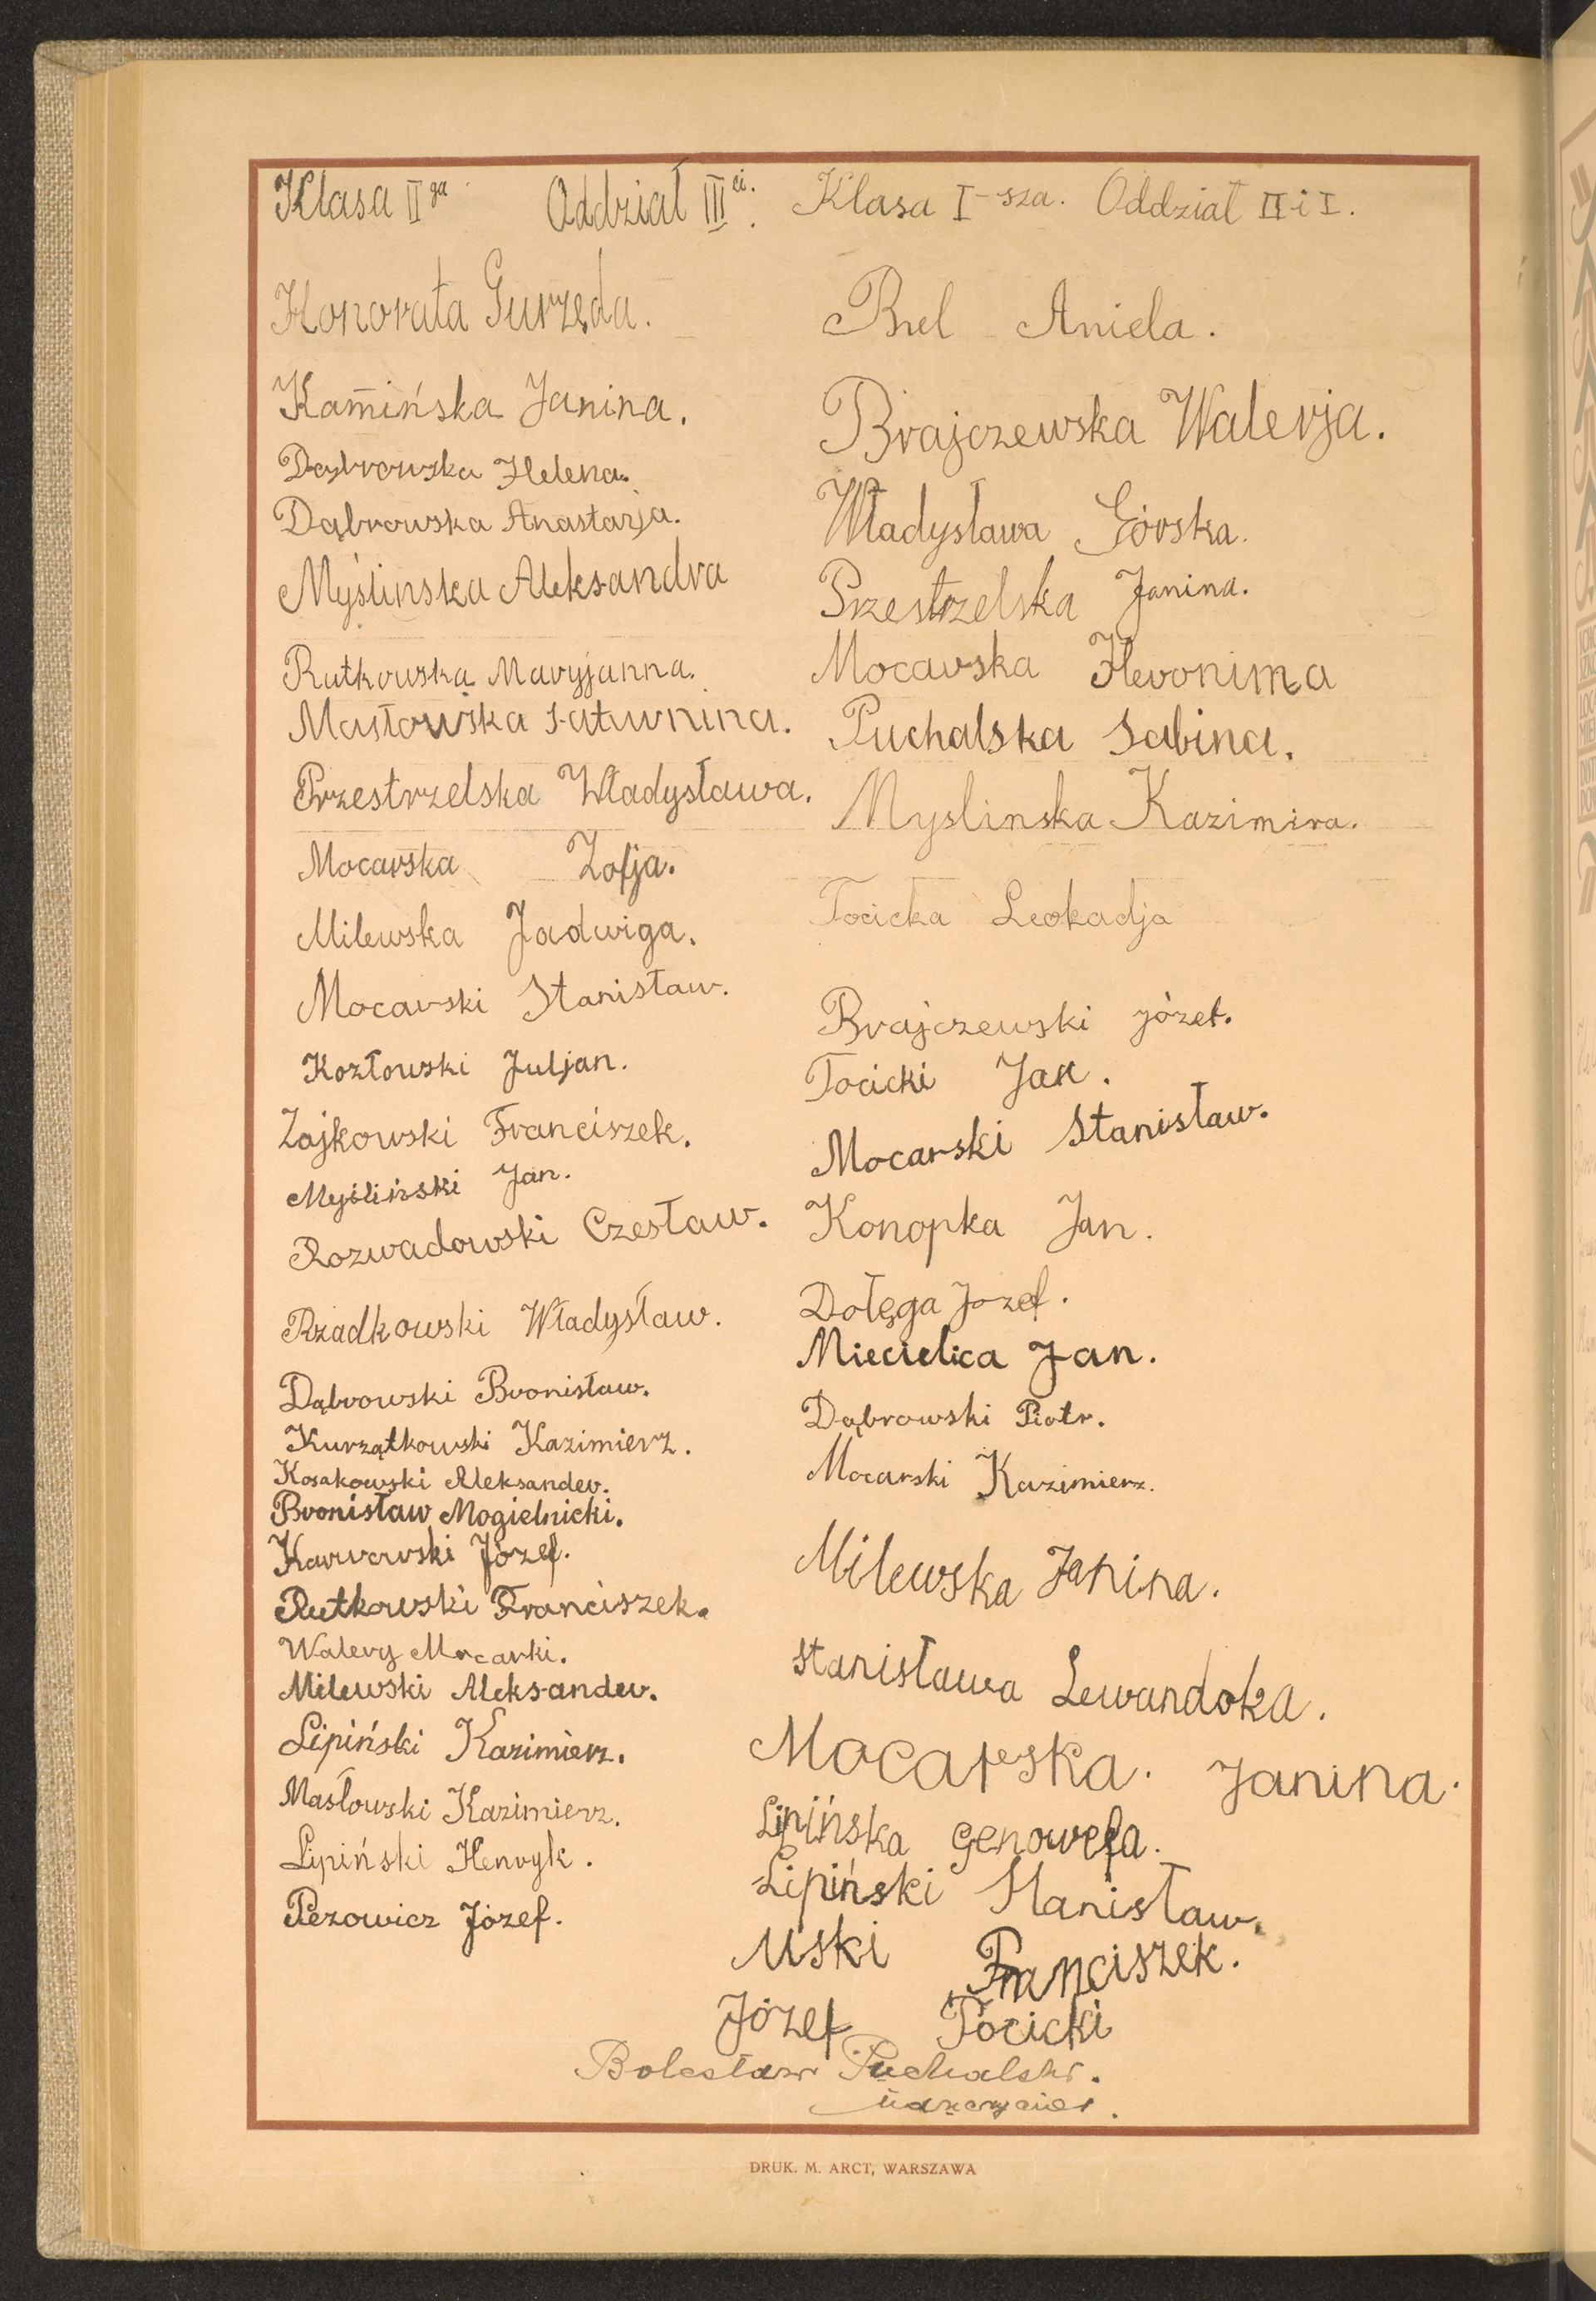 Klasa II ga Oddział III ci.
Honorata Gurzęda.
Kamińska Janina.
Dąbrowska Helena.
Dąbrowska Anastazja.
Myślinska Aleksandra
Rutkowska Maryjanna.
Masłowska Saturnina.
Przestrzelska Władysława.
Mocarska Zofja.
Milewska Jadwiga.
Mocarski Stanisław.
Kozłowski Juljan.
Zajkowski Franciszek.
Myśliński Jan.
Rozwadowski Czesław.
Rzadkowski Władysław.
Dąbrowski Bronisław.
Kurzątkowski Kazimierz.
Kosakowski Aleksander.
Bronisław Mogielnicki.
Karwowski Józef.
Rutkowski Franciszek.
Walery Mocarki.
Milewski Aleksander.
Lipiński Kazimierz.
Masłowski Kazimierz.
Lipiński Henryk.
Pezowicz Józef.
Klasa I-sza. Oddział II i I.
Bel Aniela.
Brajczewska Walerja.
Władysława Górska.
Przestrzelska Janina.
Mocarska Heronima
Puchalska Sabina.
Myslinska Kazimira.
Tocicka Leokadja
Brajczewski Józef.
Tocicki Jan.
Mocarski Stanisław.
Konopka Jan.
Dołęga Jozef.
Miecielica Jan.
Dąbrowski Piotr.
Mocarski Kazimierz.
Milewska Janina.
Stanisława Lewandoka.
Mocarska. Janina.
Lipińska Genowefa.
Lipiński Stanisław.
Uski Franciszek.
Józef Tocicki
Bolesław Puchalski.
DRUK. M. ARCT, WARSZAWA